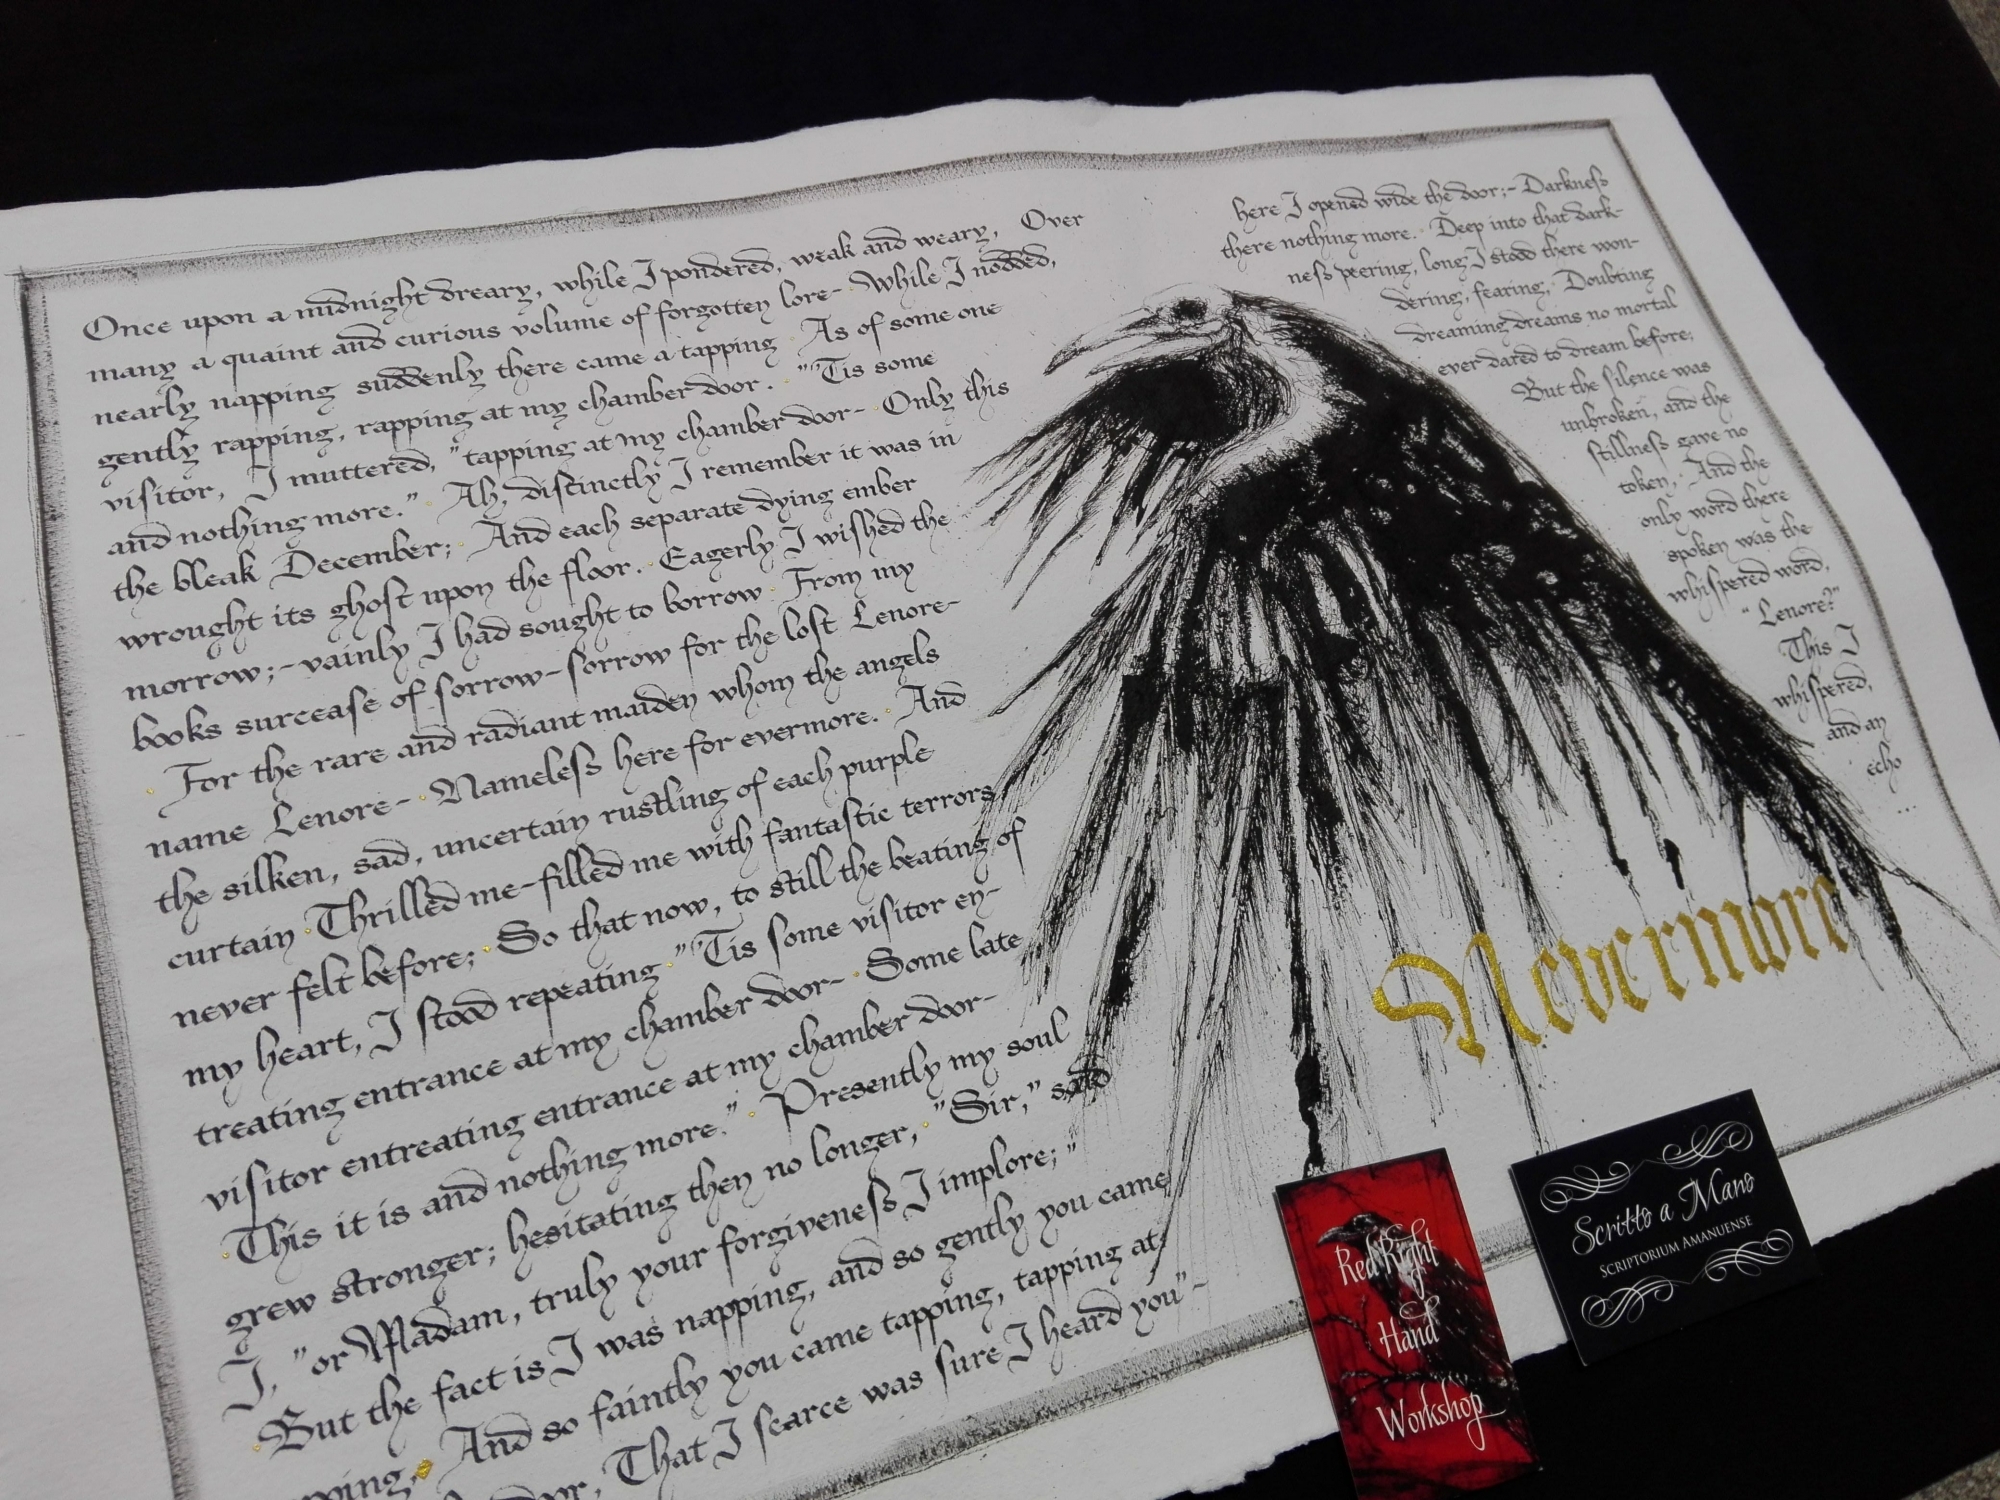 Once upon a midnight dreary, while I pondered, weak and weary, Over
many a quaint and curious volume of forgotten lore- While I nodded,
nearly napping suddenly there came a tapping As of some one
gently rapping, rapping at my chamber door. "'Tis some
visitor, I muttered, "tapping at my chamber door- Only this
and nothing more." Ah, distinctly I remember it was in
the bleak December; And each separate dying ember
wrought its ghost upon the floor. Eagerly I wished the
morrow;- vainly I had sought to borrow From my
books surcease of sorrow- sorrow for the lost Lenore-
For the rare and radiant maiden whom the angels
name Lenore- Nameless here for evermore. And
the silken, sad, uncertain rustling of each purple
curtain Thrilled me-filled me with fantastic terrors
never felt before; So that now, to still the beating of
my heart, I stood repeating "'Tis some visitor en-
treating entrance at my chamber door- Some late
visitor entreating entrance at my chamber door-
This it is and nothing more." Presently my soul
grew stronger; hesitating then no longer, "Sir," said
I, "or Madam, truly your forgiveness I implore;"
But the fact is I was napping, and so gently you came
And so faintly you came tapping, tapping at
That I scarce was sure I heard you"-
here I opened wide the door;- Darkness
there nothing more. Deep into that dark-
ness peering, long I stood there won-
dering, fearing, Doubting
dreaming dreams no mortal
ever dared to dream before;
But the silence was
unbroken, and the
stillness gave no
token, And the
only word there
spoken was the
whispered word,
"Lenore?"
This I
whispered,
and an
echo
...
Nevermore
Red Right
Hand
Workshop
Scritto a Mano
SCRIPTORIUM AMANUENSE